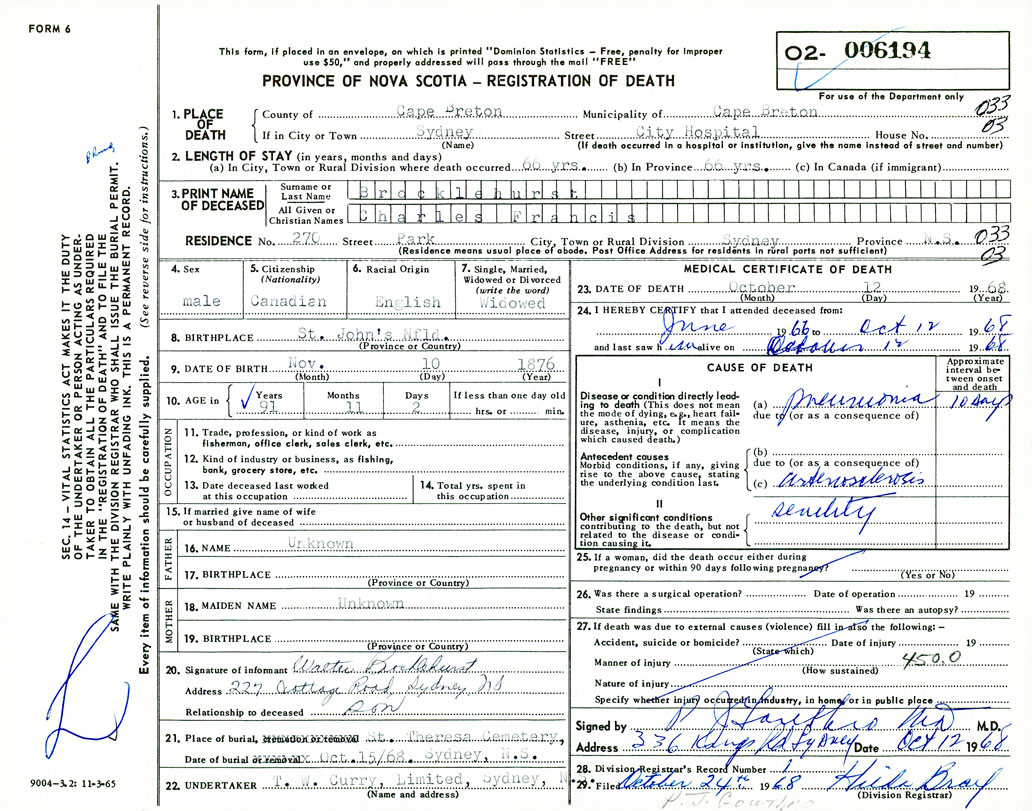 FORM 6
This form, if placed in an envelope, on which is printed "Dominion Statistics – Free, penalty for improper
use $50," and properly addressed will pass through the mail "FREE"
PROVINCE OF NOVA SCOTIA – REGISTRATION OF DEATH
02- 006194
For use of the Department only
1. PLACE OF DEATH
County of Cape Breton Municipality of Cape Breton 033
If in City or Town Sydney Street City Hospital House No. 03
(Name) (If death occurred in a hospital or institution, give the name instead of street and number)
2. LENGTH OF STAY (in years, months and days)
(a) In City, Town or Rural Division where death occurred 66 yrs. (b) In Province 66 yrs. (c) In Canada (if immigrant)
3. PRINT NAME OF DECEASED
Surname or Last Name Brocklehurst
All Given or Christian Names Charles Francis
RESIDENCE No. 270 Street Park City, Town or Rural Division Sydney Province N.S. 033
(Residence means usual place of abode. Post Office Address for residents in rural parts not sufficient) 03
4. Sex
male
5. Citizenship (Nationality)
Canadian
6. Racial Origin
English
7. Single, Married, Widowed or Divorced (write the word)
Widowed
8. BIRTHPLACE St. John's Nfld.
(Province or Country)
9. DATE OF BIRTH Nov. 10 1876
(Month) (Day) (Year)
10. AGE in Years 91 Months 11 Days 2 If less than one day old hrs. or min.
OCCUPATION
11. Trade, profession, or kind of work as
fisherman, office clerk, sales clerk, etc.
12. Kind of industry or business, as fishing,
bank, grocery store, etc.
13. Date deceased last worked
at this occupation
14. Total yrs. spent in
this occupation
15. If married give name of wife
or husband of deceased
FATHER
16. NAME Unknown
17. BIRTHPLACE
(Province or Country)
MOTHER
18. MAIDEN NAME Unknown
19. BIRTHPLACE
(Province or Country)
20. Signature of informant Walter Brocklehurst
Address 227 Cottage Road, Sydney, NS
Relationship to deceased son
21. Place of burial, cremation or removal St. Theresa Cemetery,
Date of burial or removal Oct.15/68. Sydney, N.S.
22. UNDERTAKER T. W. Curry, Limited, Sydney, N.S.
(Name and address)
MEDICAL CERTIFICATE OF DEATH
23. DATE OF DEATH October 12 1968
(Month) (Day) (Year)
24. I HEREBY CERTIFY that I attended deceased from:
June 1966 to Oct 12 1968
and last saw him alive on October 12 1968
CAUSE OF DEATH
Approximate interval between onset and death
I
Disease or condition directly leading to death (This does not mean the mode of dying, e.g., heart failure, asthenia, etc. It means the disease, injury, or complication which caused death.)
(a) pneumonia 10 days
due to (or as a consequence of)
Antecedent causes
Morbid conditions, if any, giving rise to the above cause, stating the underlying condition last.
(b)
due to (or as a consequence of)
(c) arteriosclerosis
II
Other significant conditions contributing to the death, but not related to the disease or condition causing it.
senility
25. If a woman, did the death occur either during
pregnancy or within 90 days following pregnancy?
(Yes or No)
26. Was there a surgical operation? Date of operation 19
State findings Was there an autopsy?
27. If death was due to external causes (violence) fill in also the following: –
Accident, suicide or homicide? Date of injury 19
(State which)
Manner of injury 450.0
(How sustained)
Nature of injury
Specify whether injury occurred in industry, in home, or in public place
Signed by M.D.
Address 336 Kings Rd Sydney Date Oct 12 1968
28. Division Registrar's Record Number
29. Filed October 24th 1968 Hilda Bray
(Division Registrar)
SEC. 14 – VITAL STATISTICS ACT MAKES IT THE DUTY
OF THE UNDERTAKER OR PERSON ACTING AS UNDER-
TAKER TO OBTAIN ALL THE PARTICULARS REQUIRED
IN THE "REGISTRATION OF DEATH" AND TO FILE THE
SAME WITH THE DIVISION REGISTRAR WHO SHALL ISSUE THE BURIAL PERMIT.
WRITE PLAINLY WITH UNFADING INK. THIS IS A PERMANENT RECORD.
Every item of information should be carefully supplied. (See reverse side for instructions.)
9004-3.2: 11-3-65